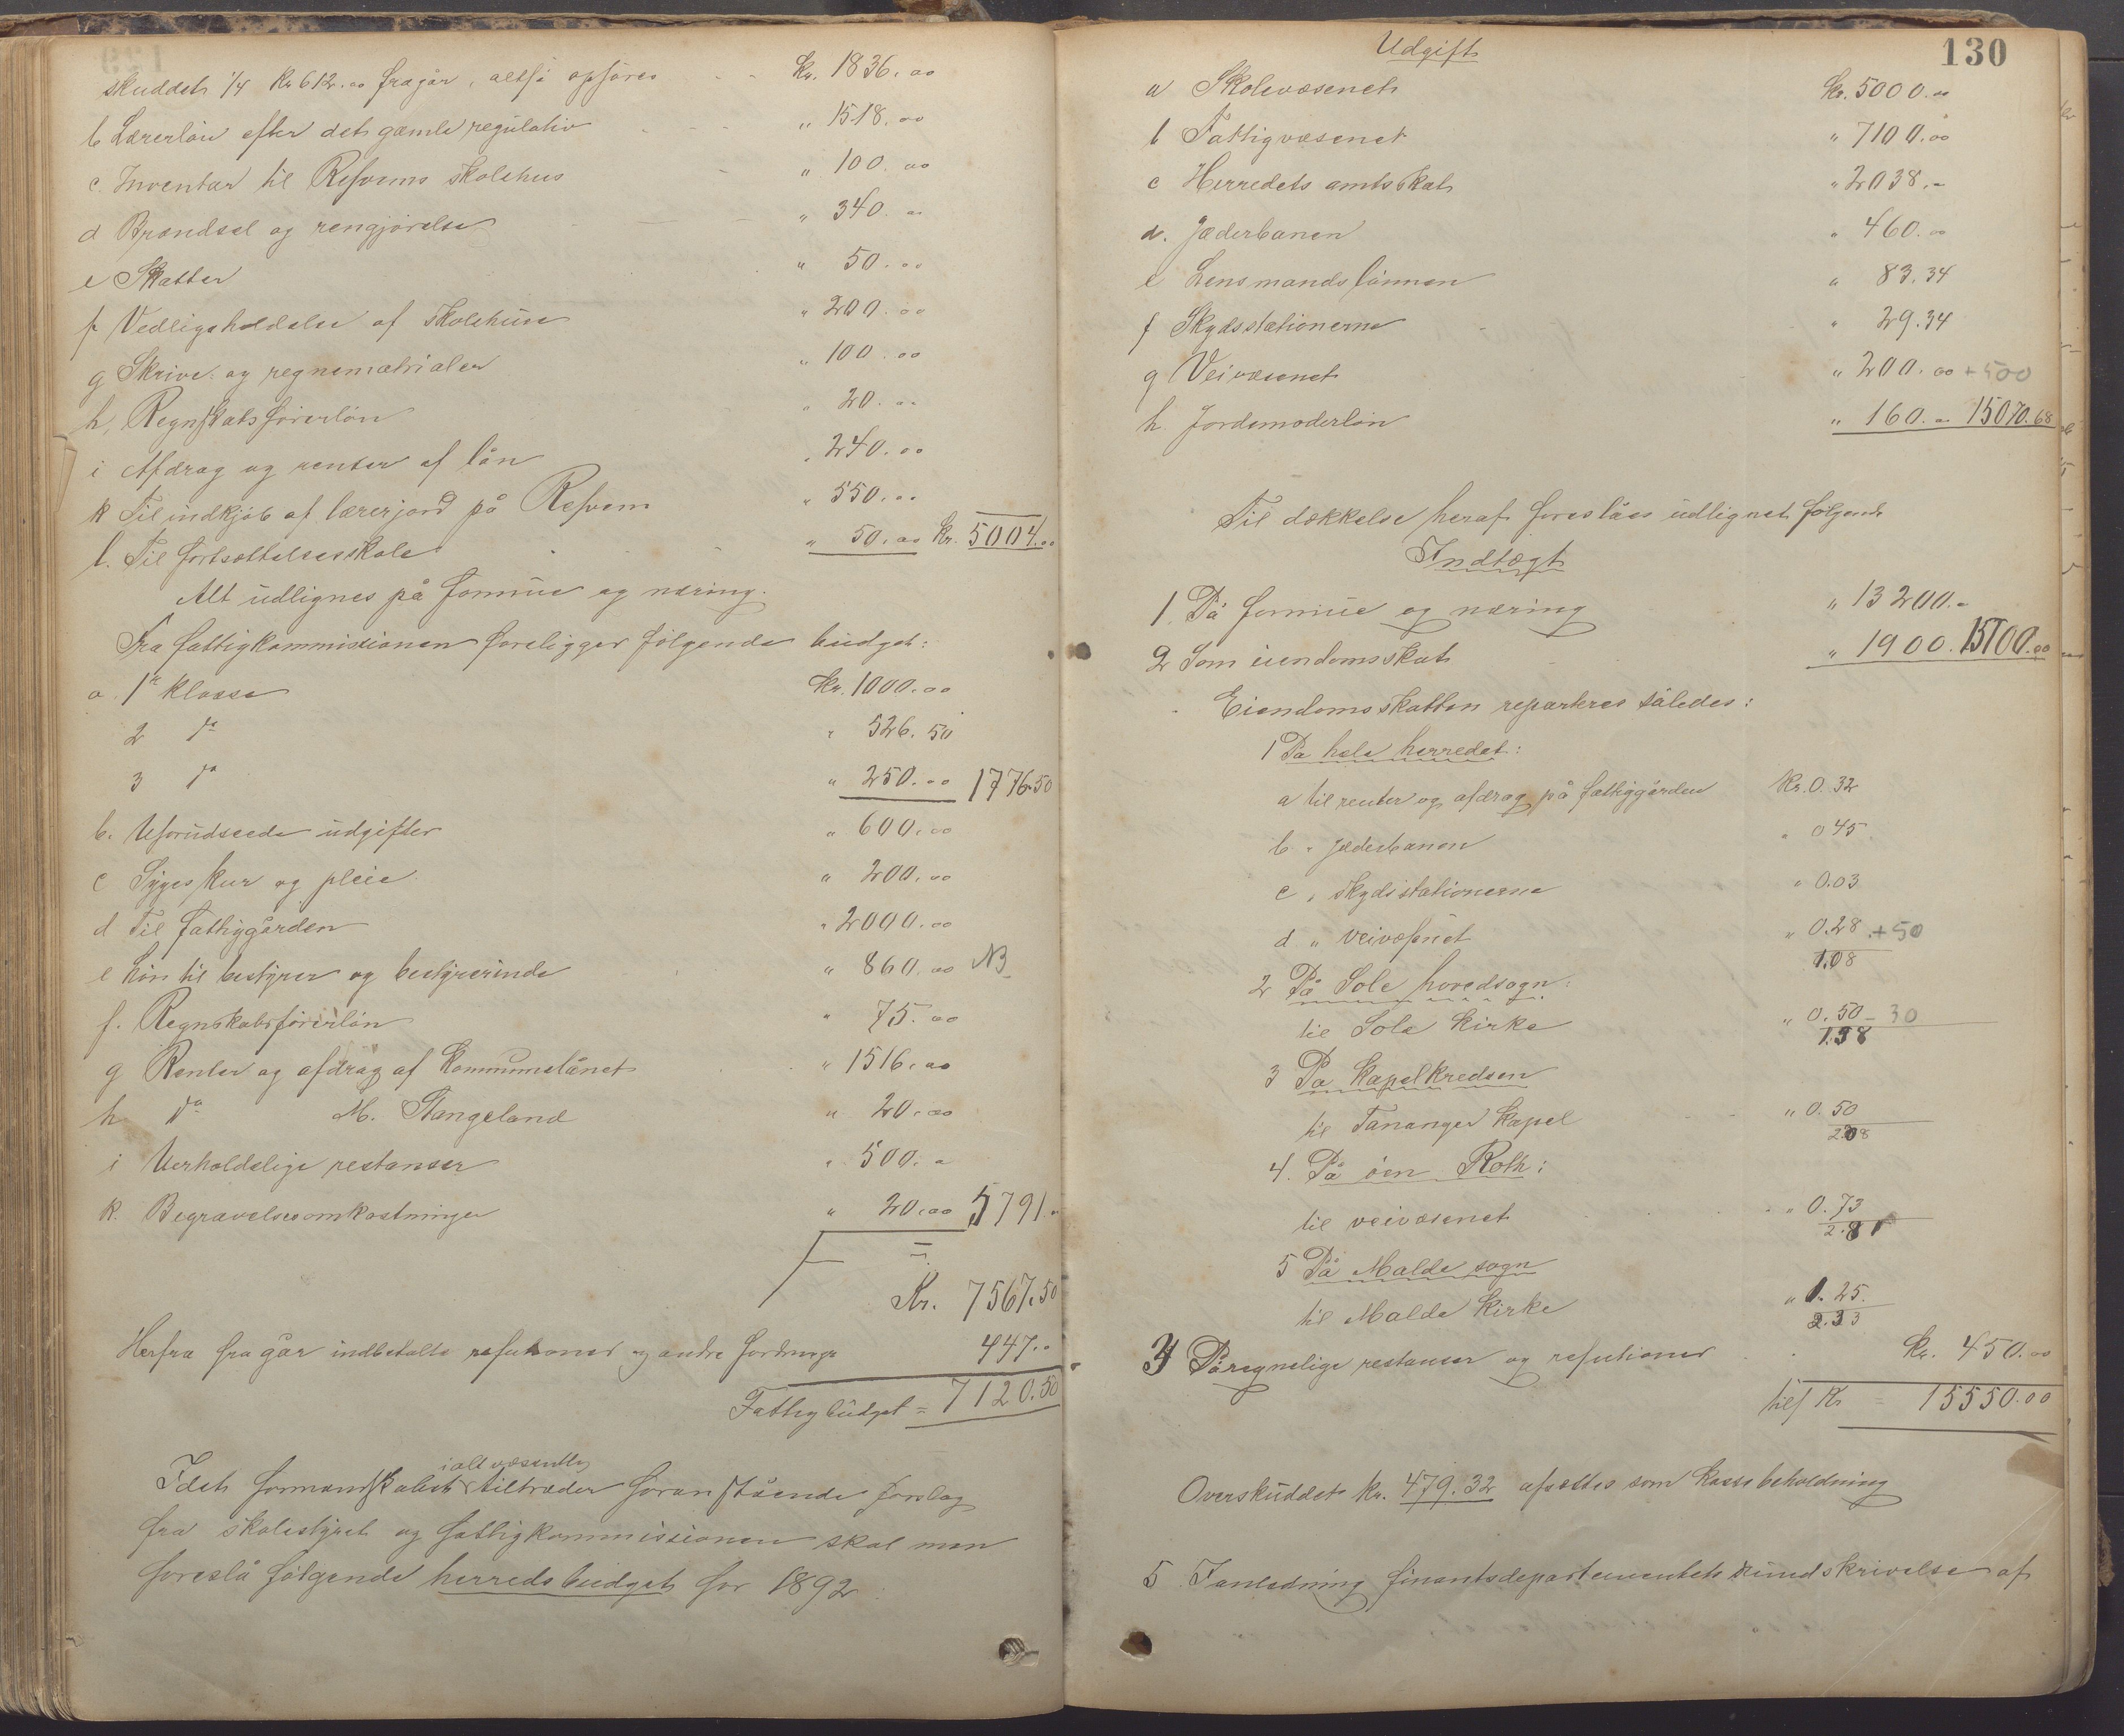 skuddets 1/4 Kr 612.00 fragår, altså opføres - - Kr. 1836.00
b Lærerløn efter det gamle regulativ - - - „ 1518.00
c. Inventar til Refsvems skolehus - „ 100.00
d Brændsel og rengjørelse - - „ 340.00
e Skatter „ 50.00
f Vedligeholdelse af skolehuse „ 200.00
g Skrive- og regnematrialer „ 100.00
h, Regnskabsførerløn „ 20.00
i Afdrag og renter af lån „ 240.00
k Til indkjøb af lærerjord på Refsvem „ 550.00
l. Til fortsættelsesskole „ 50.00 Kr. 5004.00
Alt udlignes på formue og næring.
Fra fattigkommissionen foreligger følgende budget:
a. 1ste klasse Kr. 1000.00
2 do „ 526.50
3 do „ 250.00 1776.50
b. Uforudseede udgifter „ 600.00
c Syges kur og pleie „ 200.00
d Til fattiggården „ 2000.00
e Løn til bestyrer og bestyrerinde „ 860.00 NB
f. Regnskabsførerløn „ 75.00
g Renter og afdrag af Kommunelånet „ 1516.00
h do M. Stangeland „ 20.00
i Uerholdelige restanser „ 500.00
k. Begravelsesomkostninger „ 20.00 5791.00
Kr. 7567.50
Herfra fragår indbetalte refutioner og andre fordringer 447.00
Fattigbudget = 7120.50
Idet formandskabet i alt væsentlig tiltræder foranstående forslag
fra skolestyret og fattigkommissionen skal man
foreslå følgende herredsbudget for 1892
130
Udgift
a Skolevæsenet Kr. 5000.00
b Fattigvæsenet „ 7100.00
c Herredets amtsskat „ 2038.00
d. Jæderbanen „ 460.00
e Lensmandslønnen „ 83.34
f Skydsstationerne „ 29.34
g Veivæsenet „ 200.00 + 500
h. Jordemoderløn „ 160.00 15070.68
Til dækkelse heraf foreslåes udlignet følgende
Indtægt
1. På formue og næring „ 13200.00
2 Som eiendomsskat „ 1900. 15100.00
Eiendomsskatten reparteres således:
1 På hele herredet:
a til renter og afdrag på fattiggården Kr. 0.32
b „ Jæderbanen „ 0 45
c „ skydsstationerne „ 0.03
d „ veivæsnet „ 0.28 + 50
1.08
2 På Sole hovedsogn:
til Sola kirke „ 0.50 - 30
1.58
3 På Kapelkredsen
til Tananger kapel „ 0.50
2.08
4. På øen Roth:
til veivæsenet „ 0.73
2.81
5 På Malde sogn
til Malde kirke „ 1.25.
2.33
3 Påregnelige restanser og refutioner Kr. 450.00
tils Kr = 15550.00
Overskuddet kr. 479.32 afsættes som kassebeholdning
5. I anledning finantsdepartementets rundskrivelse af